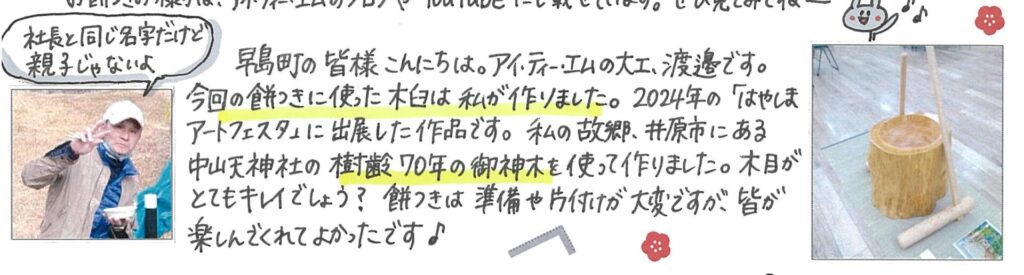 社長と同じ名字だけど
親子じゃないよ
早島町の皆様こんにちは。アイ.ティー.エムの大工、渡邉です。
今回の餅つきに使った木臼は私が作りました。2024年の「はやしま
アートフェスタ」に出展した作品です。私の故郷、井原市にある
中山天神社の樹齢70年の御神木を使って作りました。木目が
とてもキレイでしょう？餅つきは準備や片付けが大変ですが、皆が
楽しんでくれてよかったです♪